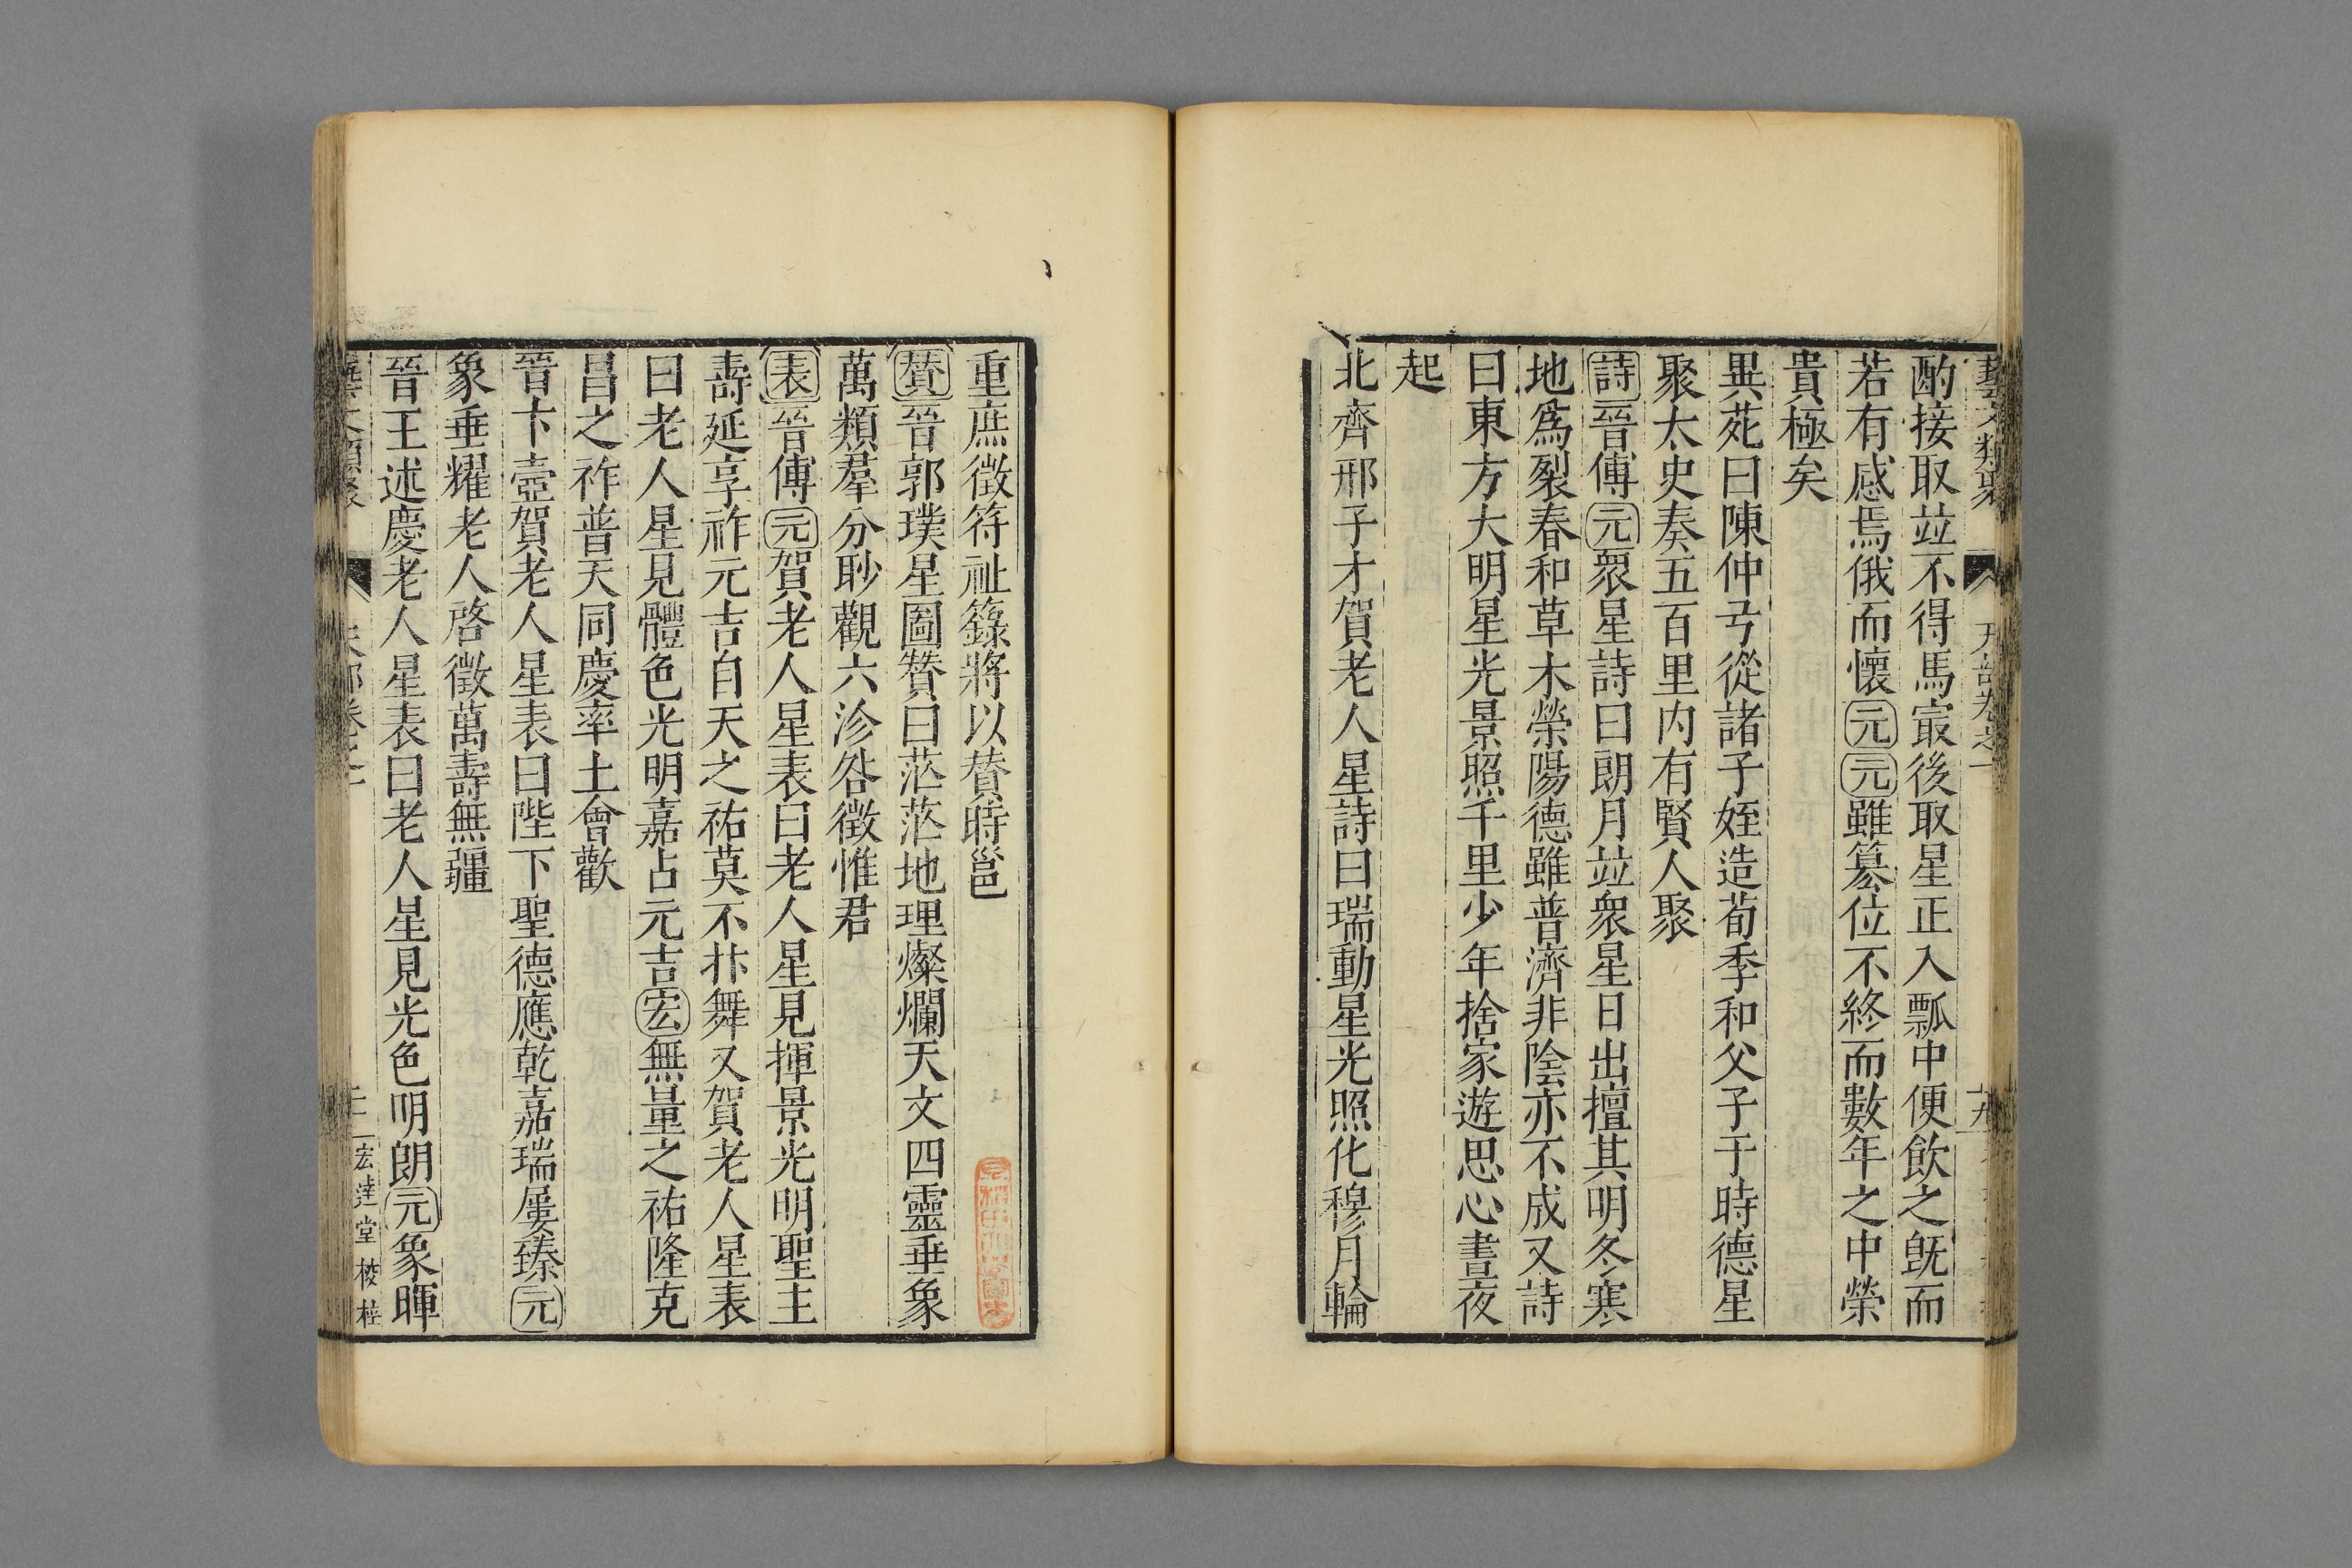 藝文類聚 天部卷之一 十九
酌接取竝不得馬㝡後取星正入瓢中便飲之既而
若有感焉俄而懷元元雖篡位不終而數年之中榮
貴極矣
異苑曰陳仲弓從諸子姪造荀季和父子于時德星
聚太史奏五百里内有賢人聚
詩晉傅元衆星詩曰朗月竝衆星日出擅其明冬寒
地爲裂春和草木榮陽德雖普濟非陰亦不成又詩
曰東方大明星光景照千里少年捨家遊思心晝夜
起
北齊邢子才賀老人星詩曰瑞動星光照化穆月輪
重庶徵符祉籙將以賛時邕
賛晉郭璞星圖贊曰茫茫地理燦爛天文四靈垂象
萬類羣分眇觀六沴咎徵惟君
表晉傅元賀老人星表曰老人星見揮景光明聖主
壽延享祚元吉自天之祐莫不抃舞又賀老人星表
曰老人星見體色光明嘉占元吉宏無量之祐隆克
昌之祚普天同慶率土會歡
晉卞壺賀老人星表曰陛下聖德應乾嘉瑞屢臻元
象垂耀老人啓徵萬壽無疆
晉王述慶老人星表曰老人星見光色明朗元象暉
天部卷之一 二十 宏達堂校梓